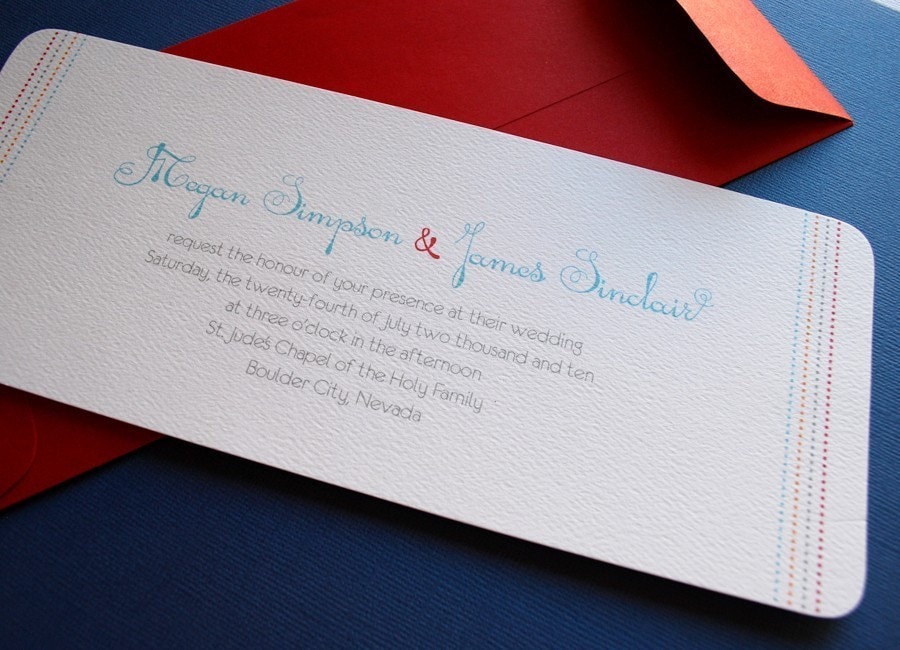 Megan Simpson & James Sinclair
request the honour of your presence at their wedding
Saturday, the twenty-fourth of July two thousand and ten
at three o'clock in the afternoon
St. Jude's Chapel of the Holy Family
Boulder City, Nevada